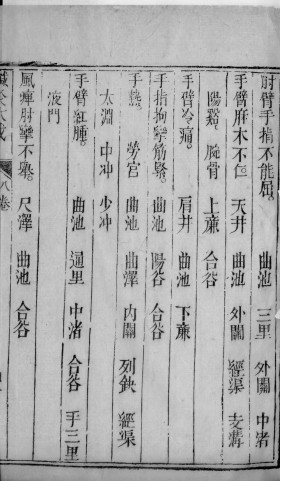 肘臂手指不能屈。 曲池 三里 外關 中渚
手臂麻木不仁。 天井 曲池 外關 經渠 支溝
陽谿 腕骨 上廉 合谷
手臂冷痛。 肩井 曲池 下廉
手指拘攣筋緊。 曲池 陽谷 合谷
手熱。 勞宮 曲池 曲澤 內關 列鈌 經渠
太淵 中冲 少冲
手臂紅腫。 曲池 通里 中渚 合谷 手三里
液門
風痺肘攣不舉。 尺澤 曲池 合谷
八卷